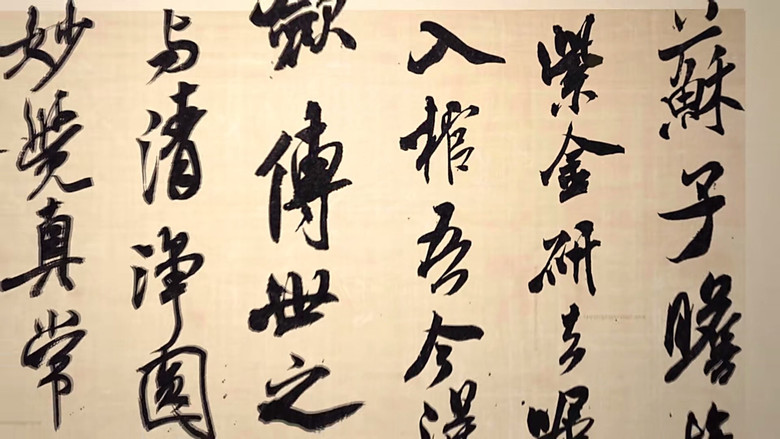 蘇子瞻
紫金研去囑
入棺吾今得
斂傳世之
与清淨圓
妙覺真常